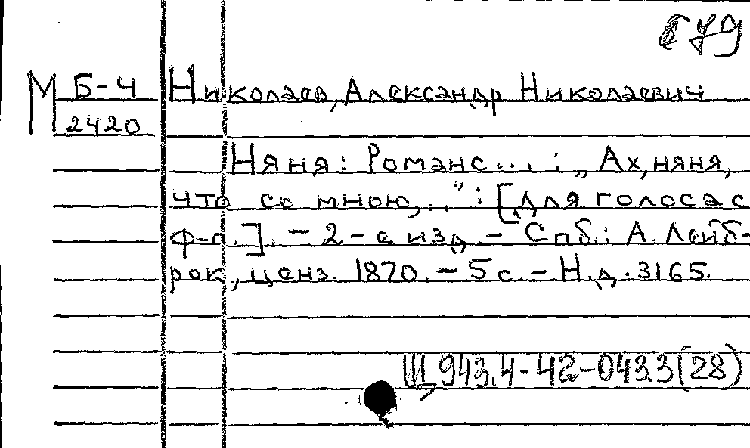 М Б-4 Николаев, Александр Николаевич
2420
Няня: Романс... : „Ах, няня,
что со мною,..": [для голоса с
ф-п.]. - 2-е изд. - Спб.: А. Лейб-
рок, ценз. 1870. - 5 с. - Н.д. 3165.
Щ 943.4-42-043.3(28)